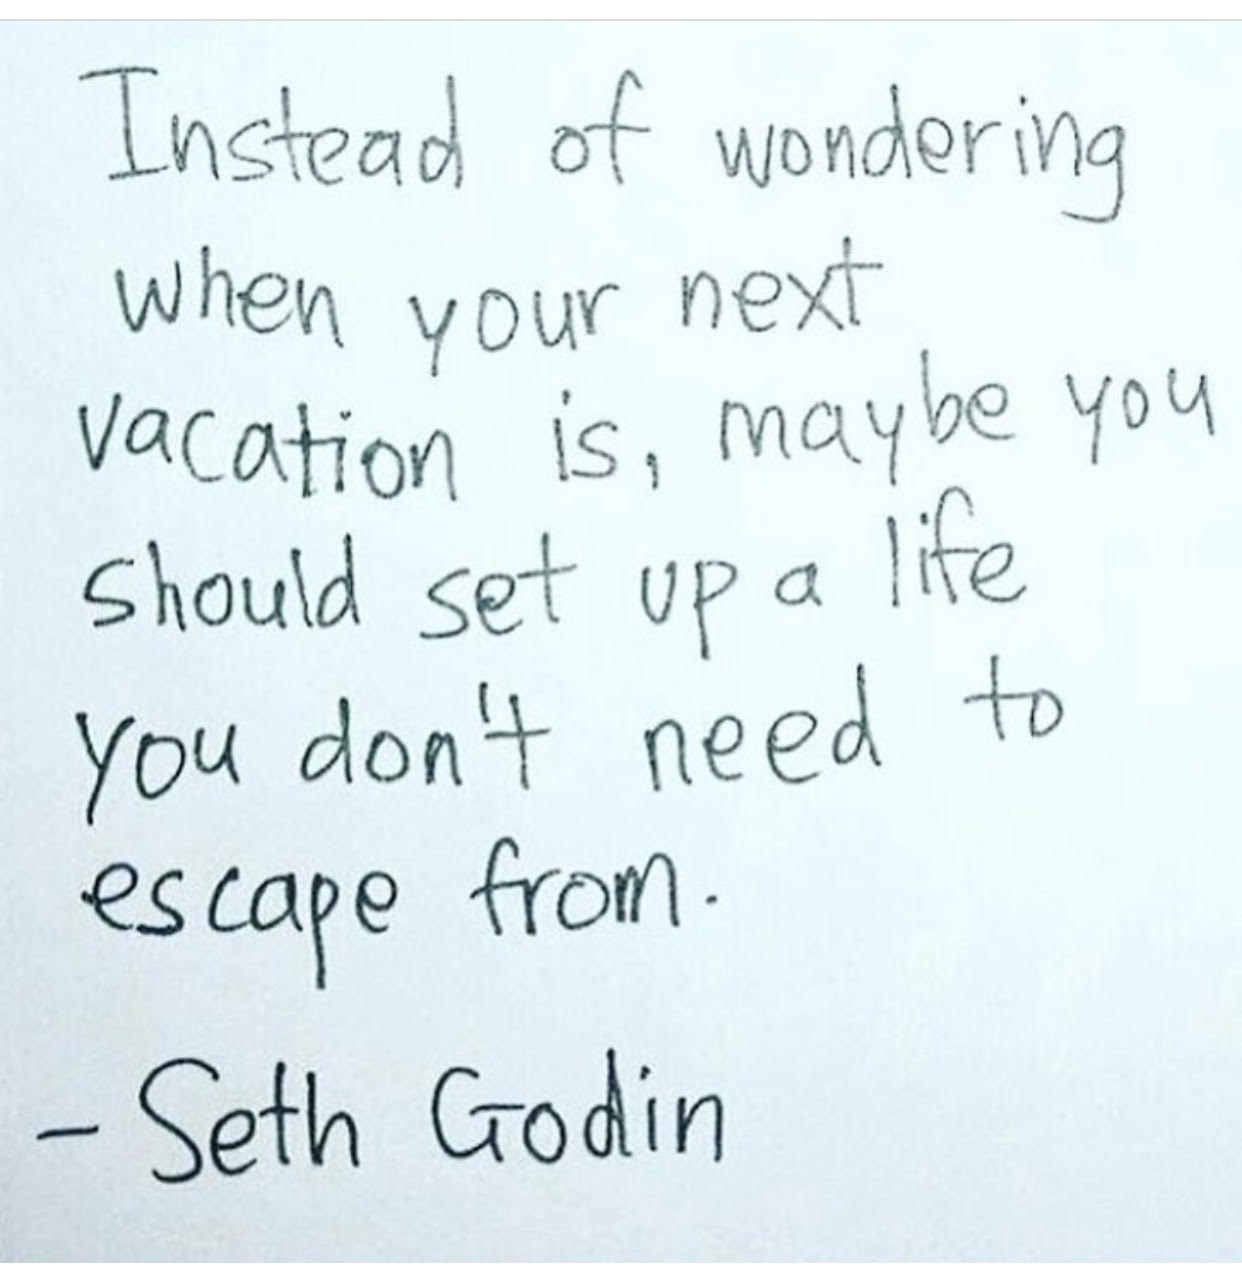 Instead of wondering
when your next
vacation is, maybe you
should set up a life
you don't need to
escape from.
- Seth Godin